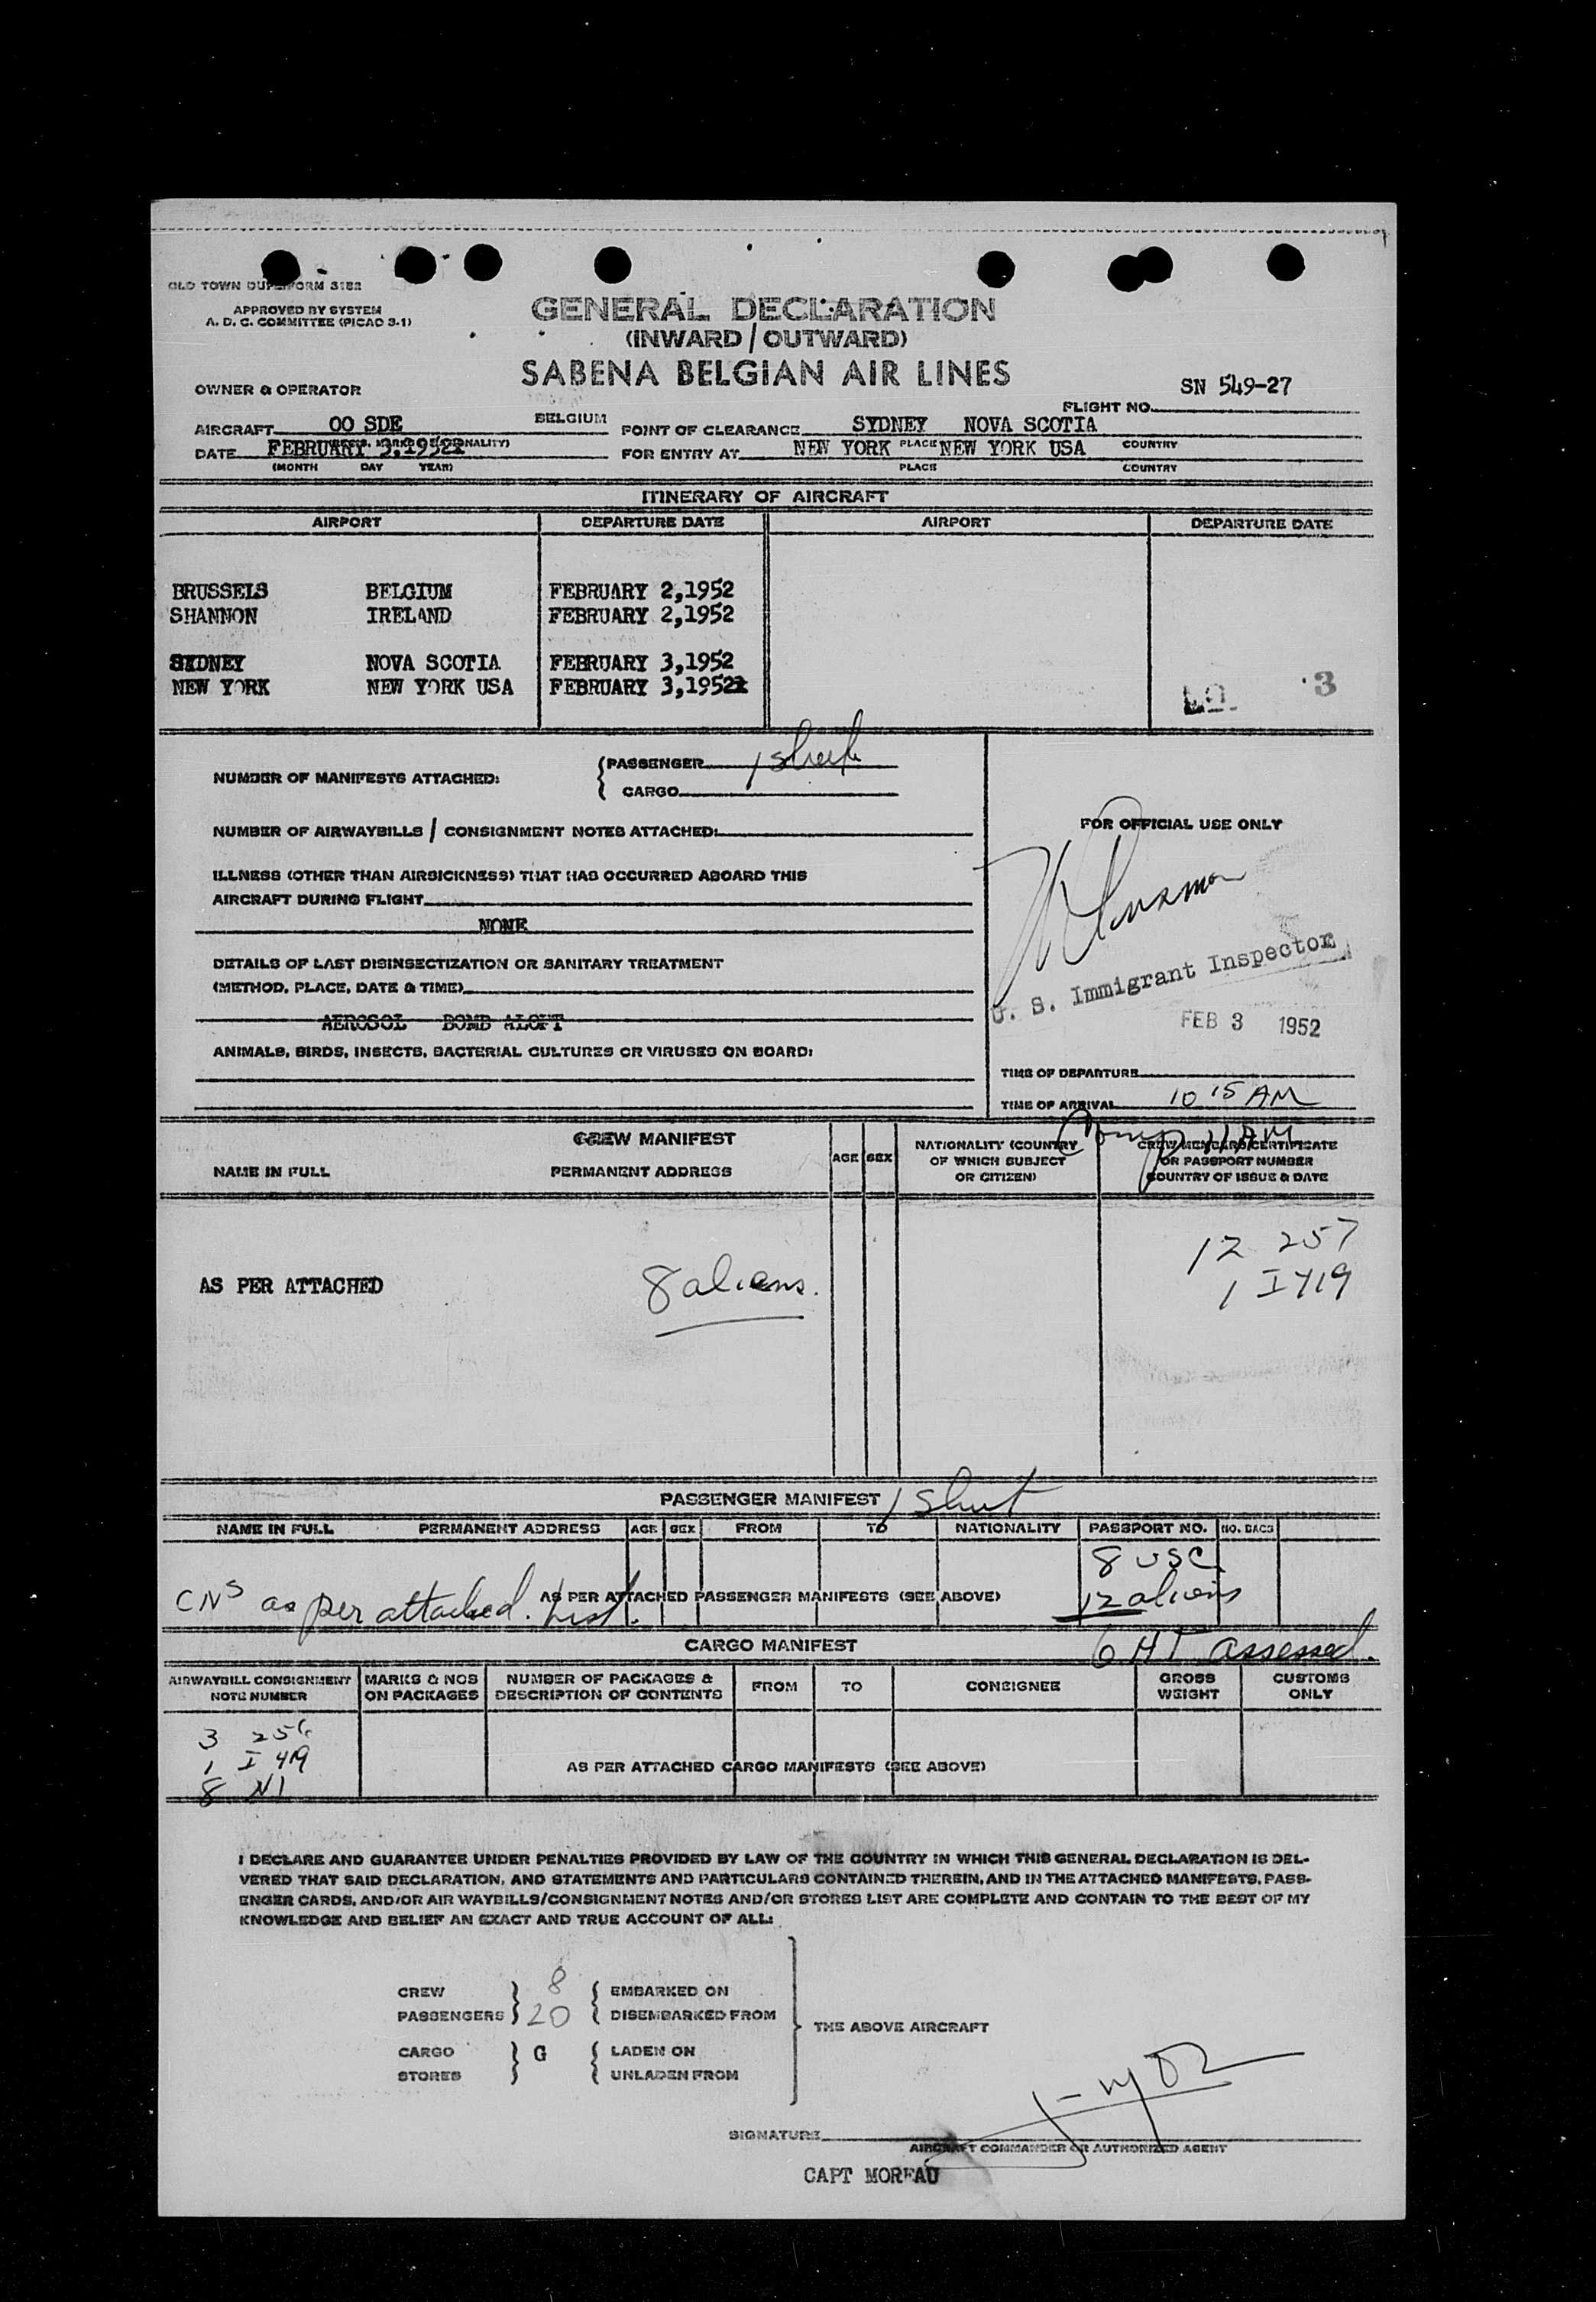 OLD TOWN DUPLIFORM 3182
APPROVED BY SYSTEM
A. D. C. COMMITTEE (PICAO 3-1)
GENERAL DECLARATION
(INWARD / OUTWARD)
SABENA BELGIAN AIR LINES
OWNER & OPERATOR
SN 549-27
FLIGHT NO.
AIRCRAFT OO SDE BELGIUM
POINT OF CLEARANCE SYDNEY NOVA SCOTIA
PLACE COUNTRY
DATE FEBRUARY 3,1952
(MONTH DAY YEAR)
FOR ENTRY AT NEW YORK NEW YORK USA
PLACE COUNTRY
ITINERARY OF AIRCRAFT
AIRPORT DEPARTURE DATE AIRPORT DEPARTURE DATE
BRUSSELS BELGIUM FEBRUARY 2,1952
SHANNON IRELAND FEBRUARY 2,1952
SYDNEY NOVA SCOTIA FEBRUARY 3,1952
NEW YORK NEW YORK USA FEBRUARY 3,1952
3
NUMBER OF MANIFESTS ATTACHED:
PASSENGER 1 sheet
CARGO
NUMBER OF AIRWAYBILLS / CONSIGNMENT NOTES ATTACHED:
ILLNESS (OTHER THAN AIRSICKNESS) THAT HAS OCCURRED ABOARD THIS
AIRCRAFT DURING FLIGHT
NONE
DETAILS OF LAST DISINSECTIZATION OR SANITARY TREATMENT
(METHOD, PLACE, DATE & TIME)
AEROSOL BOMB ALOFT
ANIMALS, BIRDS, INSECTS, BACTERIAL CULTURES OR VIRUSES ON BOARD:
FOR OFFICIAL USE ONLY
U. S. Immigrant Inspector
FEB 3 1952
TIME OF DEPARTURE
TIME OF ARRIVAL 10 15 AM
Comp 11 AM
CREW MANIFEST
NAME IN FULL PERMANENT ADDRESS AGE SEX
NATIONALITY (COUNTRY
OF WHICH SUBJECT
OR CITIZEN)
CREW MEMBERS CERTIFICATE
OR PASSPORT NUMBER
COUNTRY OF ISSUE & DATE
12 257
1 I 419
AS PER ATTACHED 8 aliens.
PASSENGER MANIFEST 1 sheet
NAME IN FULL PERMANENT ADDRESS AGE SEX FROM TO NATIONALITY PASSPORT NO. NO. BAGS
8 USC
CNS as per attached. List. AS PER ATTACHED PASSENGER MANIFESTS (SEE ABOVE) 12 aliens
CARGO MANIFEST 6 HT assessed.
AIRWAYBILL CONSIGNMENT
NOTE NUMBER
MARKS & NOS
ON PACKAGES
NUMBER OF PACKAGES &
DESCRIPTION OF CONTENTS
FROM TO CONSIGNEE
GROSS
WEIGHT
CUSTOMS
ONLY
3 256
1 I 419
8 NI
AS PER ATTACHED CARGO MANIFESTS (SEE ABOVE)
I DECLARE AND GUARANTEE UNDER PENALTIES PROVIDED BY LAW OF THE COUNTRY IN WHICH THIS GENERAL DECLARATION IS DEL-
VERED THAT SAID DECLARATION, AND STATEMENTS AND PARTICULARS CONTAINED THEREIN, AND IN THE ATTACHED MANIFESTS, PASS-
ENGER CARDS, AND/OR AIR WAYBILLS/CONSIGNMENT NOTES AND/OR STORES LIST ARE COMPLETE AND CONTAIN TO THE BEST OF MY
KNOWLEDGE AND BELIEF AN EXACT AND TRUE ACCOUNT OF ALL:
CREW 8 EMBARKED ON
PASSENGERS 20 DISEMBARKED FROM
THE ABOVE AIRCRAFT
CARGO G LADEN ON
STORES UNLADEN FROM
SIGNATURE
AIRCRAFT COMMANDER OR AUTHORIZED AGENT
CAPT MOREAU